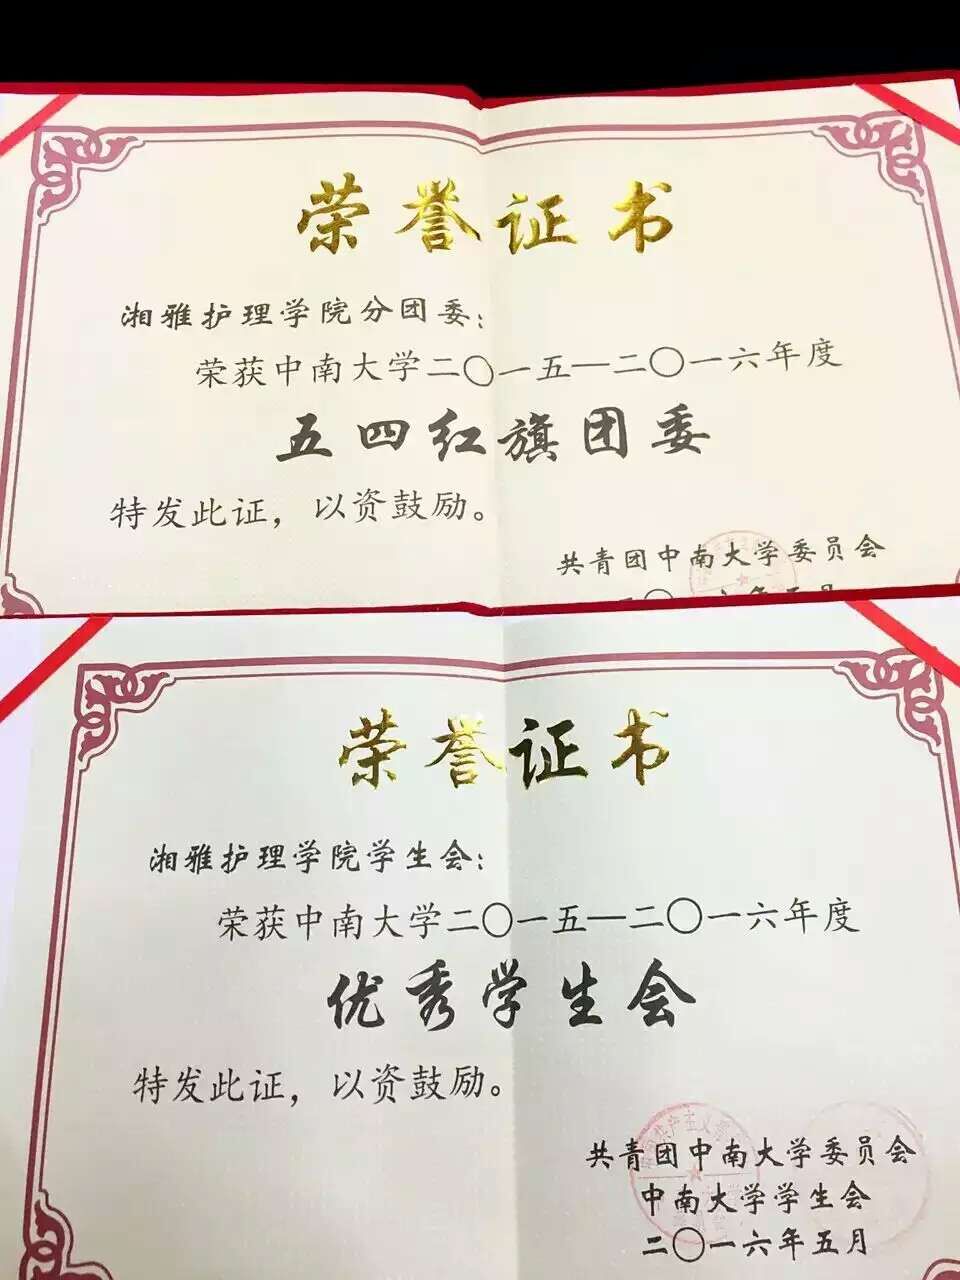 荣誉证书
湘雅护理学院分团委：
荣获中南大学二〇一五—二〇一六年度
五四红旗团委
特发此证，以资鼓励。
共青团中南大学委员会
荣誉证书
湘雅护理学院学生会：
荣获中南大学二〇一五—二〇一六年度
优秀学生会
特发此证，以资鼓励。
共青团中南大学委员会
中南大学学生会
二〇一六年五月